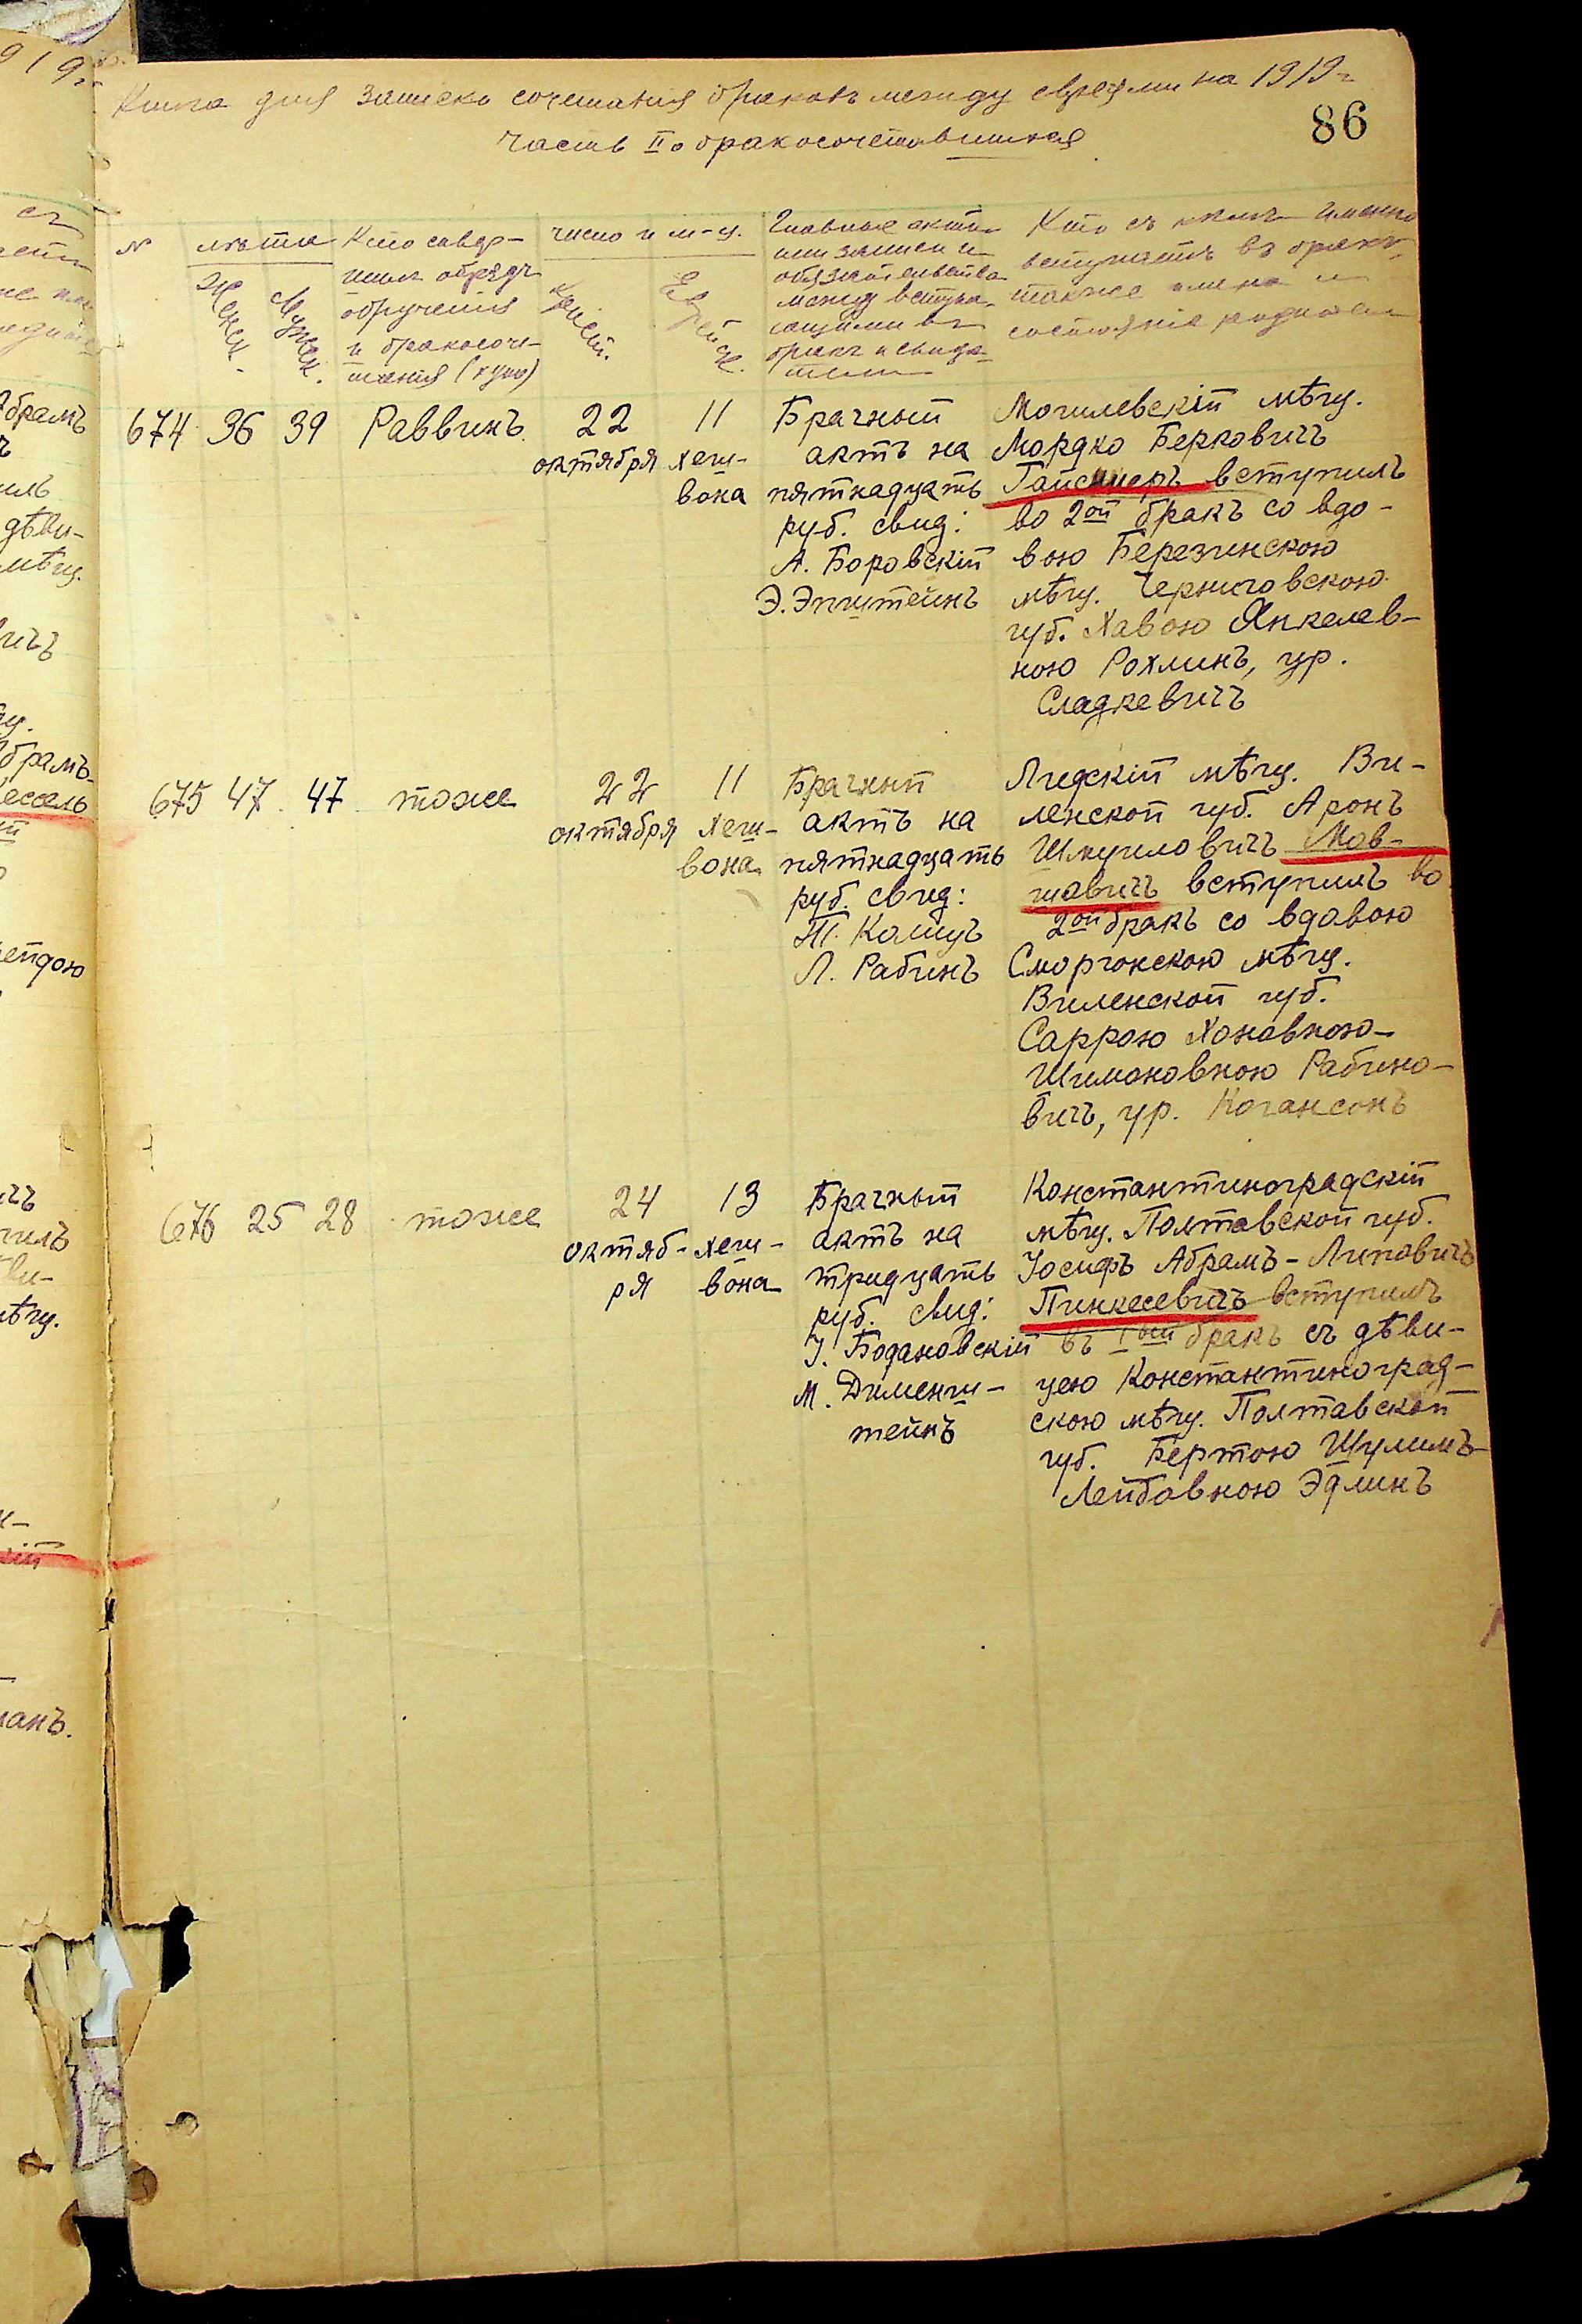 Книга для записки сочетанія браковъ между евреями на 1919 г.
86
часть II о бракосочетавшихся
№
лѣта
Женск.
Мужск.
Кто совер-
шилъ обрядъ
обрученія
и бракосоче-
танія (хупо)
число и м-ц.
Христ.
Еврейск.
Главные акты
или записи и
обязательства
между вступа-
ющими въ
бракъ и свиде-
тели
Кто съ кѣмъ именно
вступаетъ въ бракъ,
также имена и
состояніе родителей
674 36 39 Раввинъ
22
октября
11
хеш-
вона
Брачный
актъ на
пятнадцать
руб. свид:
А. Боровскій
Э. Эпштейнъ
Могилевскій мѣщ.
Мордко Берковичъ
Гайснеръ вступилъ
во 2ой бракъ со вдо-
вою Березинскою
мѣщ. Черниговскою
губ. Хавою Янкелев-
ною Рохлинъ, ур.
Сладкевичъ
675 47 47 тоже
22
октября
11
хеш-
вона
Брачный
актъ на
пятнадцать
руб. свид:
Кацъ
Л. Рабинъ
Лидскій мѣщ. Ви-
ленской губ. Аронъ
Шмуиловичъ Мов-
шовичъ вступилъ во
2ой бракъ со вдовою
Сморгонскою мѣщ.
Виленской губ.
Саррою Хоновною-
Шимоновною Рабино-
вичъ, ур. Когансонъ
676 25 28 тоже
24
октяб-
ря
13
хеш-
вона
Брачный
актъ на
тридцать
руб. свид:
І. Бодановскій
М. Дименш-
тейнъ
Константиноградскій
мѣщ. Полтавской губ.
Іосифъ Абрамъ-Липовичъ
Пинкесевичъ вступилъ
въ Iый бракъ съ дѣви-
цею Константиноград-
скою мѣщ. Полтавской
губ. Бертою Шулимъ-
Лейбовною Эдлинъ